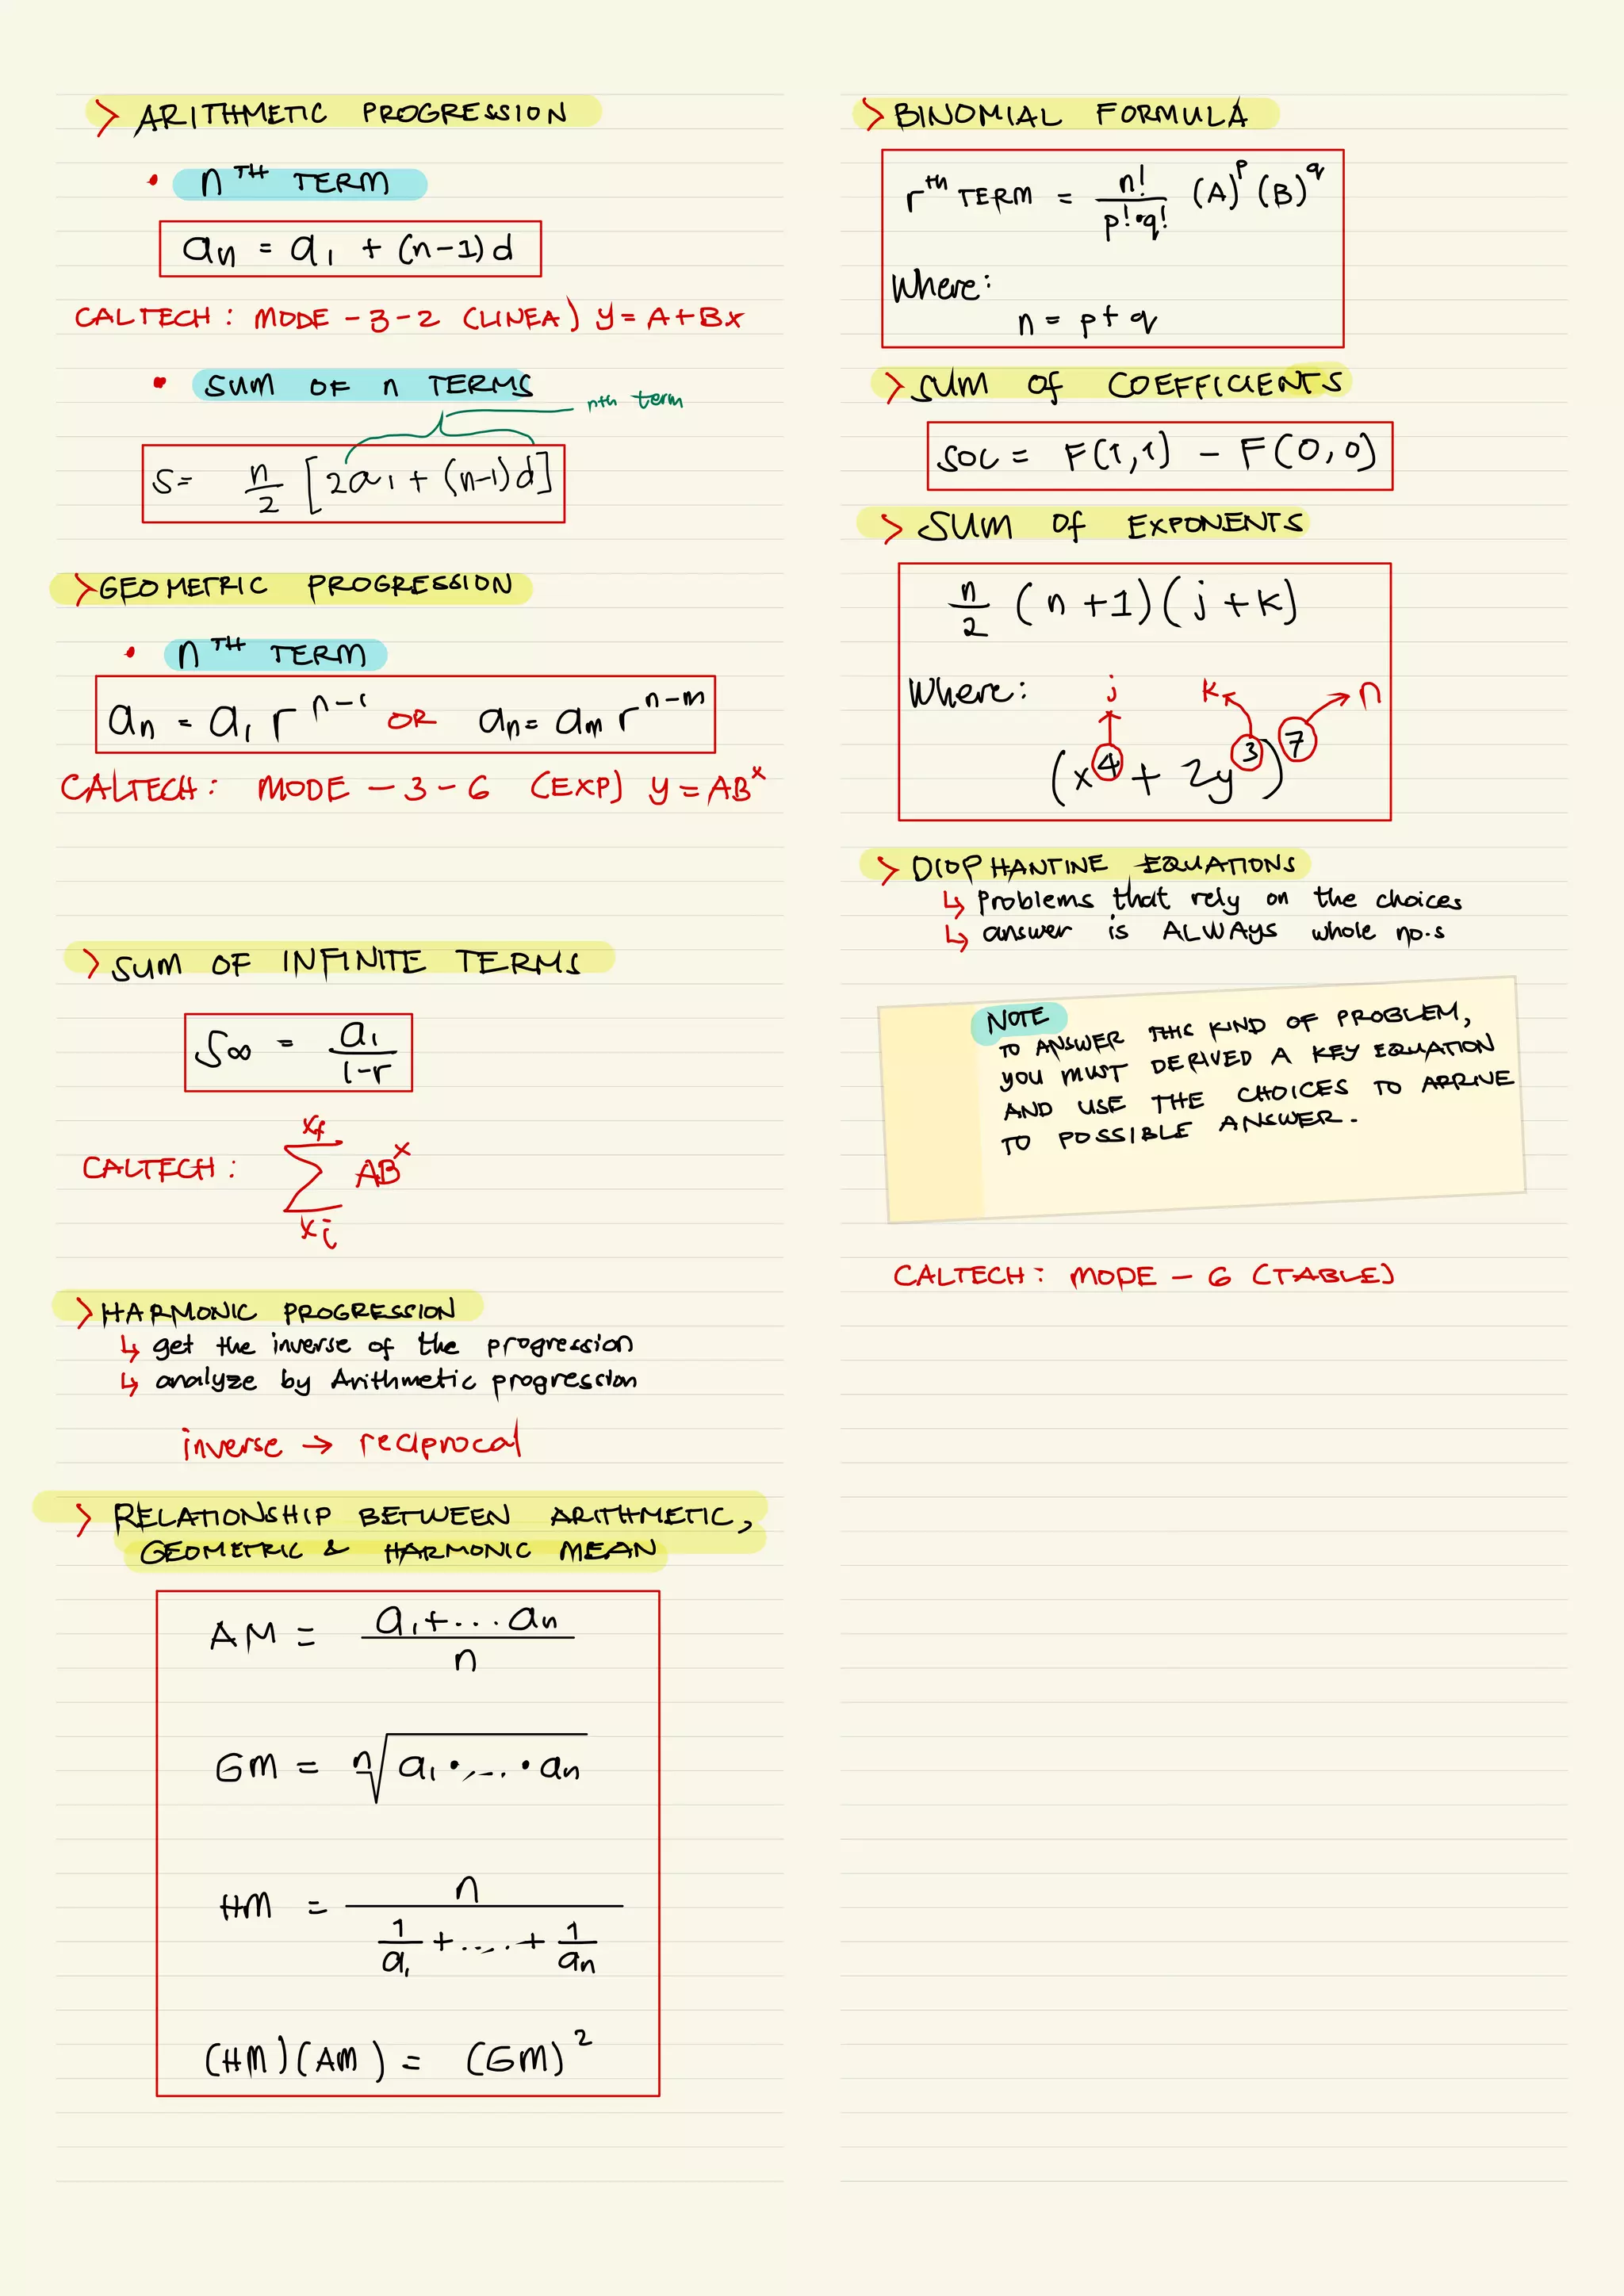 > ARITHMETIC PROGRESSION
• nᵀᴴ TERM
aₙ = a₁ + (n-1)d
CALTECH: MODE -3-2 (LINEA) y = A+Bx
• SUM OF n TERMS
nth term
S = n/2 [2a₁ + (n-1)d]
> GEOMETRIC PROGRESSION
• nᵀᴴ TERM
aₙ = a₁ r^(n-1) OR aₙ = aₘ r^(n-m)
CALTECH: MODE -3-6 (EXP) y = AB^x
> SUM OF INFINITE TERMS
S∞ = a₁/(1-r)
xf
CALTECH: Σ AB^x
xi
> HARMONIC PROGRESSION
↳ get the inverse of the progression
↳ analyze by Arithmetic progression
inverse → reciprocal
> RELATIONSHIP BETWEEN ARITHMETIC,
GEOMETRIC & HARMONIC MEAN
AM = (a₁+...aₙ)/n
GM = ⁿ√(a₁•....•aₙ)
HM = n/(1/a₁ +....+ 1/aₙ)
(HM)(AM) = (GM)²
> BINOMIAL FORMULA
rᵗʰ TERM = n!/(p!•q!) (A)^p (B)^q
Where:
n = p+q
> SUM of COEFFICIENTS
SOC = F(1,1) - F(0,0)
> SUM of EXPONENTS
n/2 (n+1)(j+k)
Where: j k n
(x⁴ + 2y³)⁷
> DIOPHANTINE EQUATIONS
↳ Problems that rely on the choices
↳ answer is ALWAYS whole no.s
NOTE
TO ANSWER THIS KIND OF PROBLEM,
YOU MUST DERIVED A KEY EQUATION
AND USE THE CHOICES TO ARRIVE
TO POSSIBLE ANSWER.
CALTECH: MODE - 6 (TABLE)